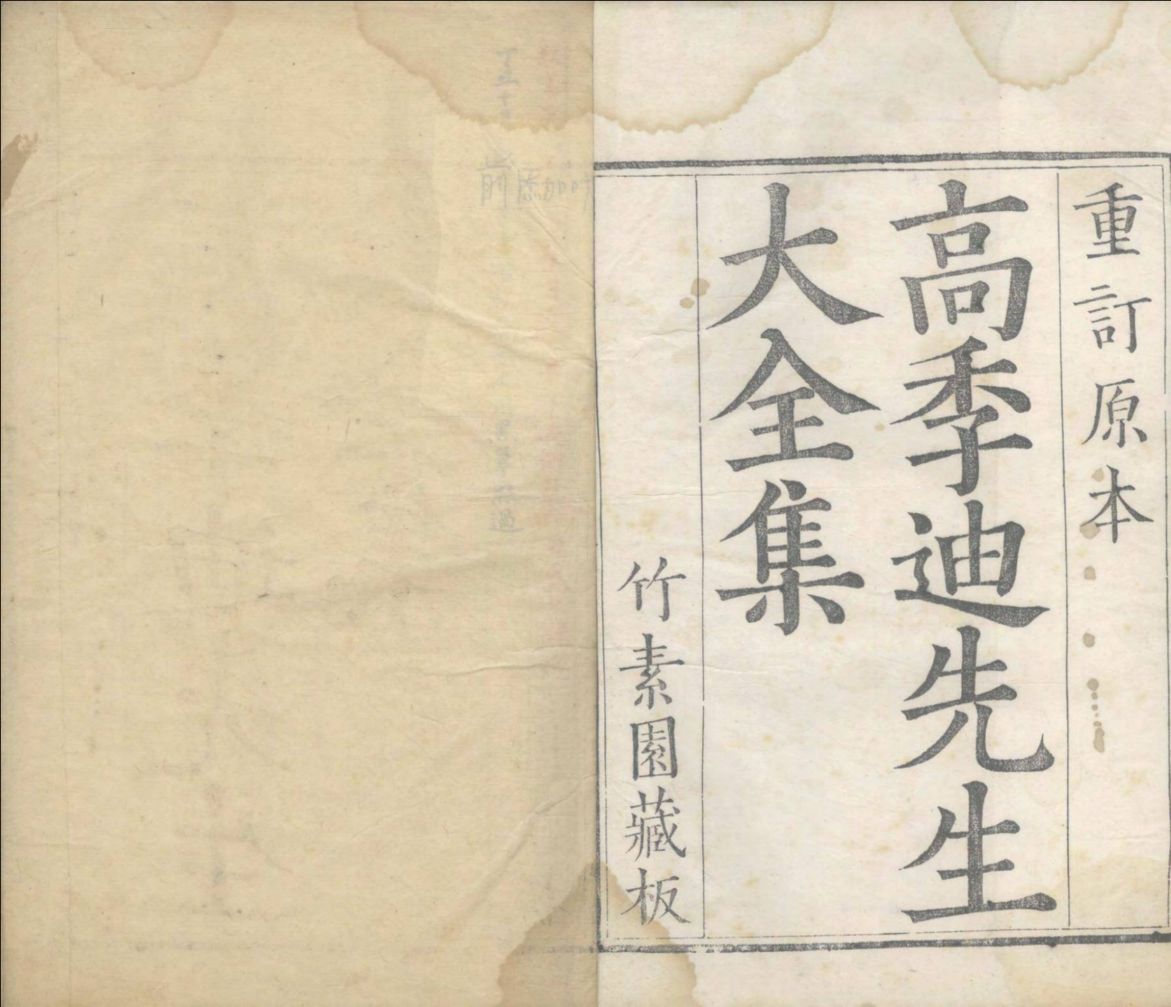 重訂原本
高季迪先生
大全集
竹素園藏板